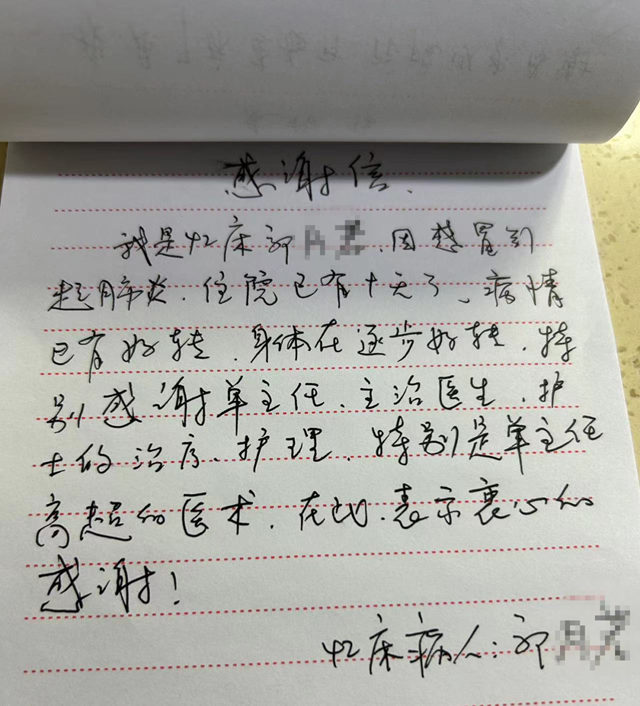 感谢信.
我是42床郭 因感冒引
起肺炎.住院已有十天了、病情
已有好转.身体在逐步好转.特
别感谢单主任、主治医生.护
士的治疗、护理.特别是单主任
高超的医术.在此.表示衷心的
感谢!
42床病人:郭